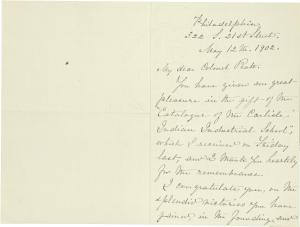 Philadelphia,
322 S. 21st Street.
May 12th, 1902.
My dear Colonel Pratt.
You have given me great
pleasure in the gift of the
Catalogue of the Carlisle
Indian Industrial School,
which I received on Friday
last, and I thank you heartily
for the remembrance.
I congratulate you, on the
splendid victories you have
gained in the founding, and